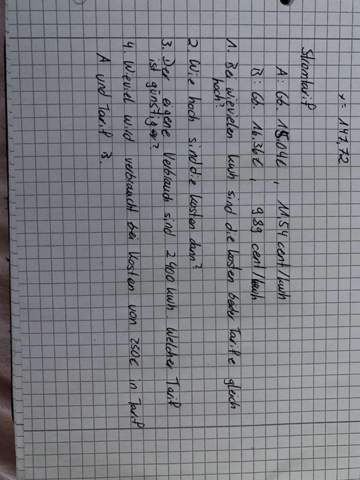 x = 147,72
Stromtarif
A: Gb. 15.04€ , 11.54 cent/kwh
B: Gb. 16.36€ , 9.89 cent/kwh
1. Bei wievielen kwh sind die kosten beider Tarife gleich
hoch?
2. Wie hoch sind die kosten dann?
3. Der eigene Verbrauch sind 2400 kwh. Welcher Tarif
ist günstiger?
4. Wieviel wird verbraucht bei kosten von 250€ in Tarif
A und Tarif B.